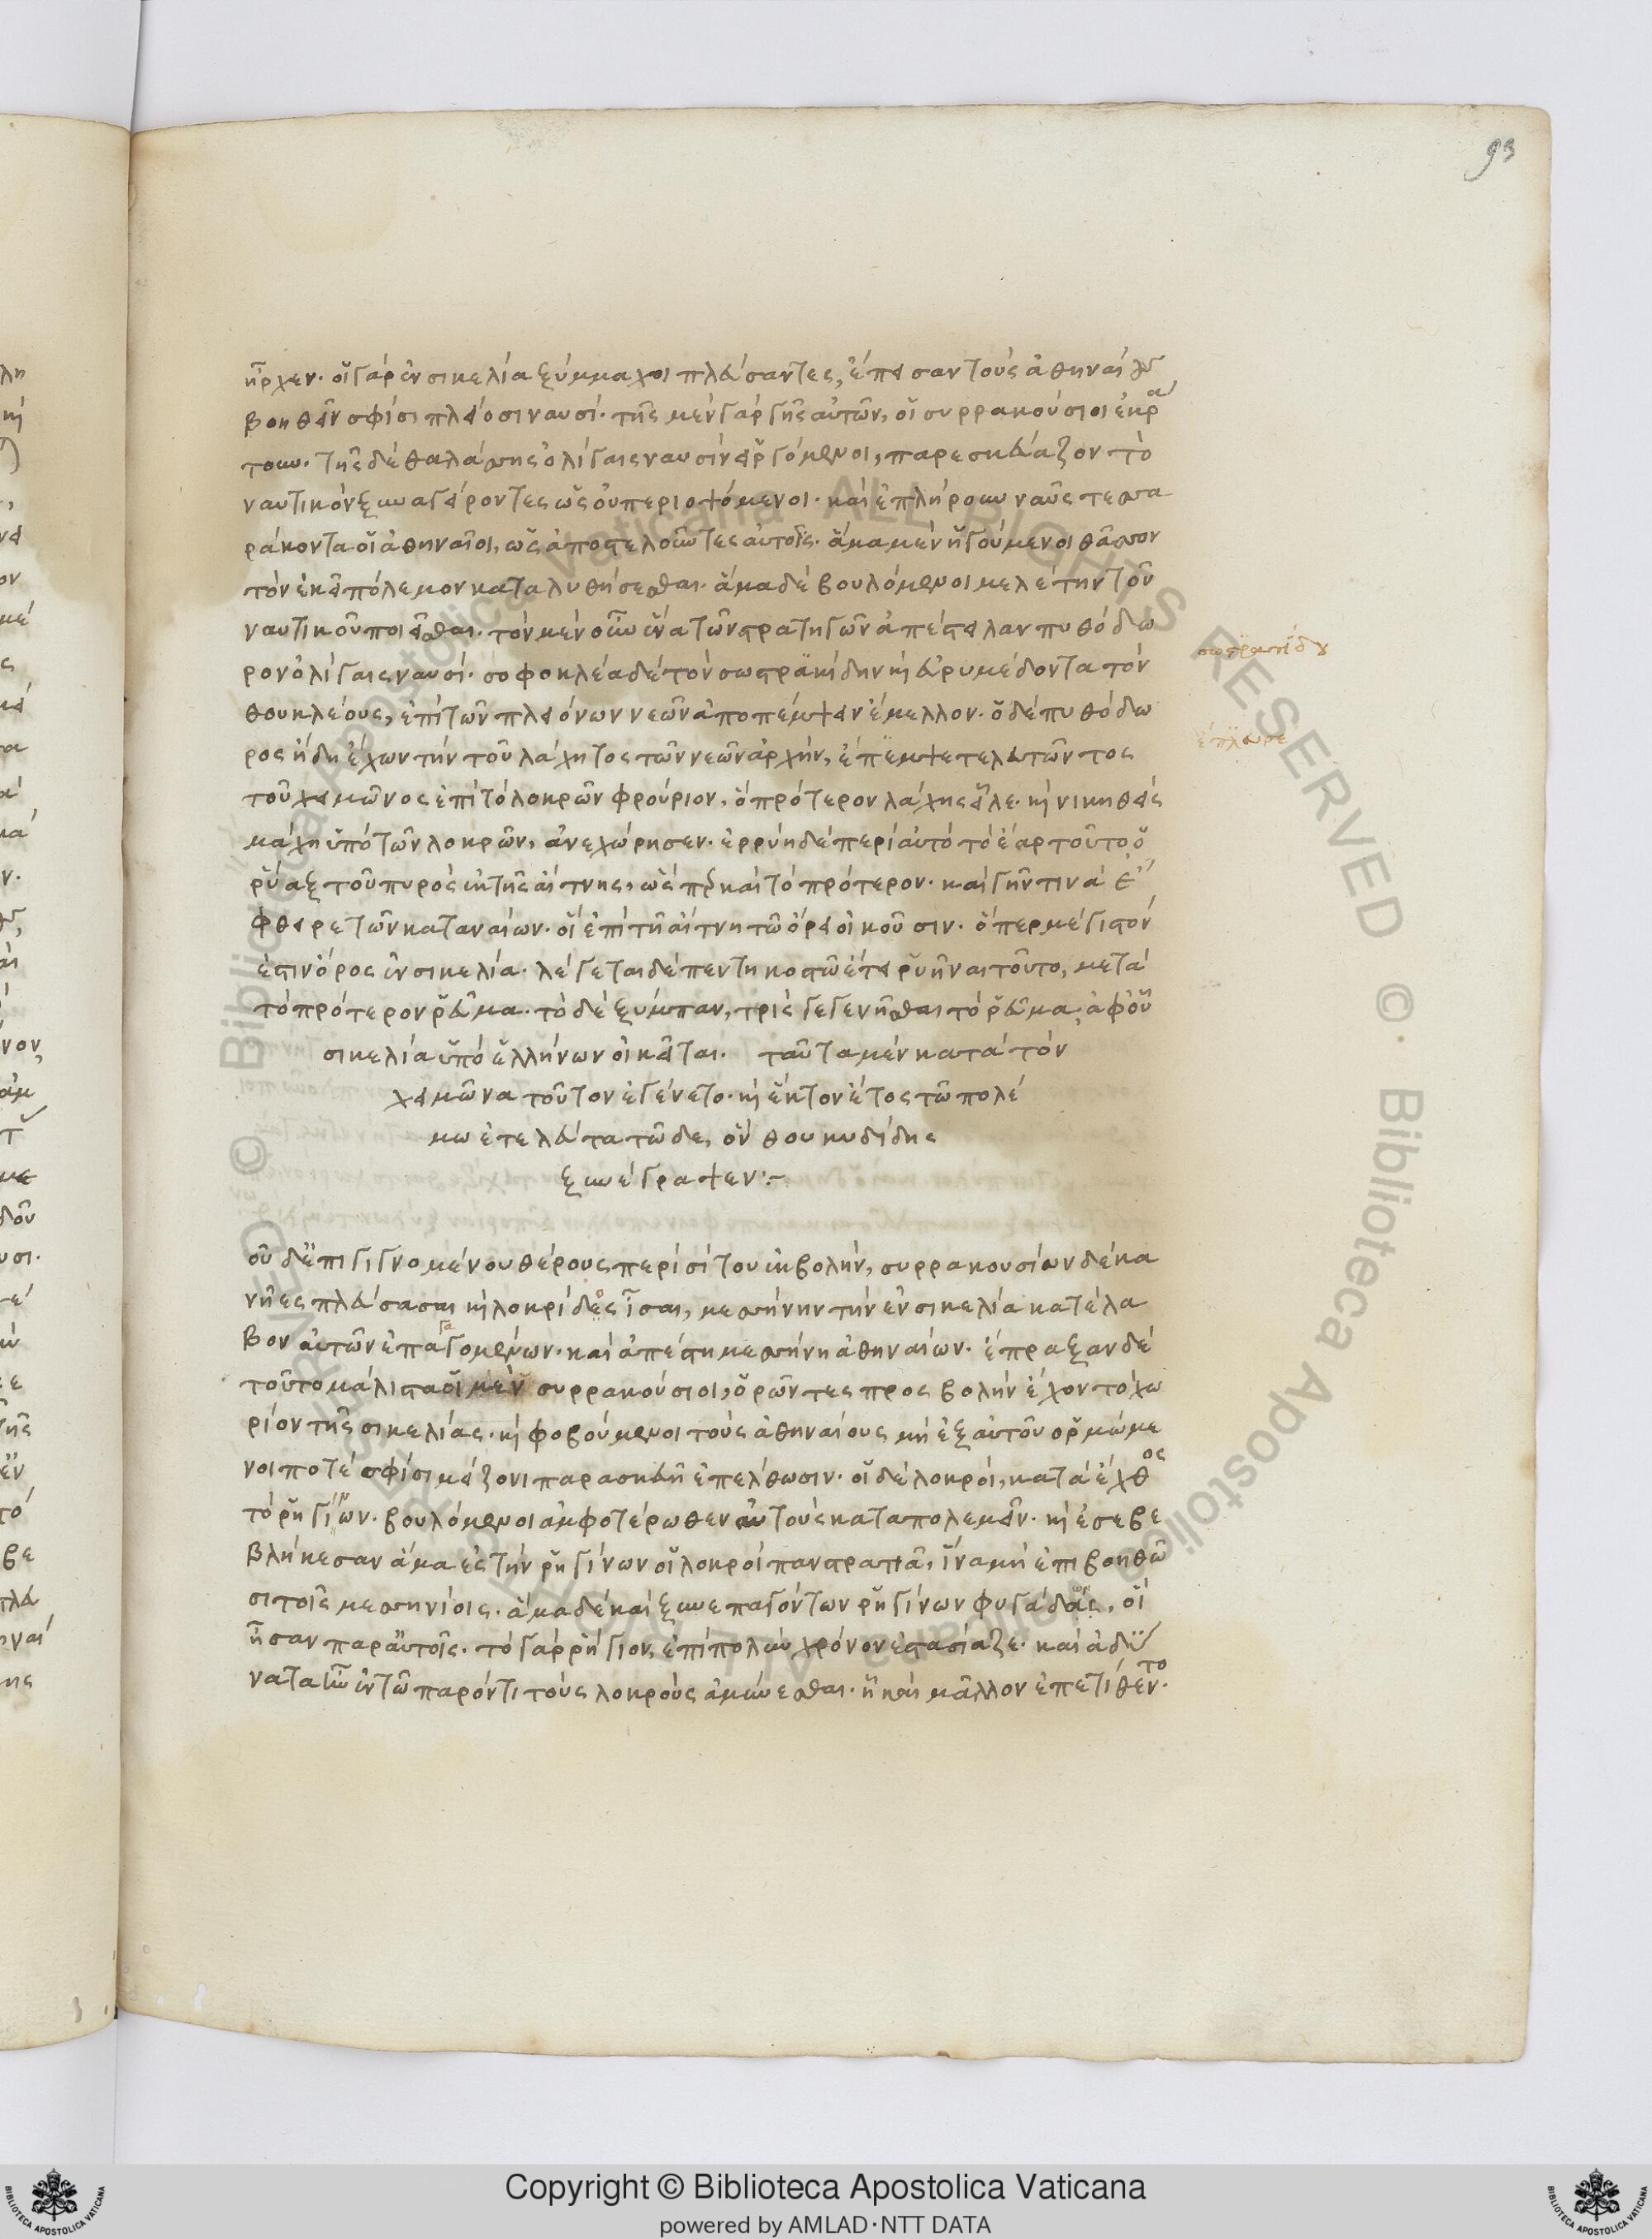 93
ἦρχεν. οἱ γὰρ ἐν σικελία ξύμμαχοι πλεύσαντες, ἔπεισαν τοὺς ἀθηναίους
βοηθεῖν σφίσι πλείοσι ναυσί. τῆς μὲν γὰρ γῆς αὐτῶν, οἱ συρρακούσιοι ἐκρά
τουν. τῆς δὲ θαλάσσης ὀλίγαις ναυσὶν εἰργόμενοι, παρεσκευάζον τὸ
ναυτικὸν ξυναγείροντες ὡς οὐ περιοψόμενοι. καὶ ἐπλήρουν ναῦς τεσσα
ράκοντα οἱ ἀθηναῖοι, ὡς ἀποστελοῦντες αὐτοῖς. ἅμα μὲν ἡγούμενοι θᾶσσον
τὸν ἐκεῖ πόλεμον καταλυθήσεσθαι. ἅμα δὲ βουλόμενοι μελέτην τοῦ
ναυτικοῦ ποιεῖσθαι. τὸν μὲν οὖν ἕνα τῶν στρατηγῶν ἀπέστειλαν πυθόδω
ρον ὀλίγαις ναυσί. σοφοκλέα δὲ τὸν σωστρακίδην κὶ εὐρυμέδοντα τὸν
θουκλέους, ἐπὶ τῶν πλειόνων νεῶν ἀποπέμψειν ἔμελλον. ὁ δὲ πυθόδω
ρος ἤδη ἔχων τὴν τοῦ λάχητος τῶν νεῶν ἀρχήν, ἔπεμψε τελευτῶντος
τοῦ χειμῶνος ἐπὶ τὸ λοκρῶν φρούριον, ὃ πρότερον λάχης εἷλε. κὶ νικηθεὶς
μάχη ὑπὸ τῶν λοκρῶν, ἀνεχώρησεν. ἐρρύη δὲ περὶ αὐτὸ τὸ ἔαρ τοῦτο, ὁ
ῥύαξ τοῦ πυρὸς ἐκ τῆς αἴτνης, ὥσπερ καὶ τὸ πρότερον. καὶ γῆν τινὰ ἔ
φθειρε τῶν καταναίων. οἳ ἐπὶ τῆ αἴτνη τῶ ὄρει οἰκοῦσιν. ὅπερ μέγιστόν
ἐστιν ὄρος ἐν σικελία. λέγεται δὲ πεντηκοστῶ ἔτει ῥυῆναι τοῦτο, μετὰ
τὸ πρότερον ῥεῦμα. τὸ δὲ ξύμπαν, τρὶς γεγενῆσθαι τὸ ῥεῦμα, ἀφ' οὗ
σικελία ὑπὸ ἑλλήνων οἰκεῖται. ταῦτα μὲν κατὰ τὸν
χειμῶνα τοῦτον ἐγένετο. κὶ ἕκτον ἔτος τῶ πολέ
μω ἐτελεύτα τῶδε, ὃν θουκυδίδης
ξυνέγραψεν:-
σωστρατίδου
ἔπλευσε
οῦ δ' ἐπιγιγνομένου θέρους περὶ σίτου ἐκβολὴν, συρρακουσίων δέκα
νῆες πλεύσασαι κὶ λοκρίδες ἴσαι, μεσσήνην τὴν ἐν σικελία κατέλα
βον αὐτῶν ἐπαγομένων. καὶ ἀπέστη μεσσήνη ἀθηναίων. ἔπραξαν δὲ
τοῦτο μάλιστα οἱ μὲν συρρακούσιοι, ὁρῶντες προςβολὴν ἔχον τὸ χω
ρίον τῆς σικελίας. κὶ φοβούμενοι τοὺς ἀθηναίους μὴ ἐξ αὐτοῦ ὁρμώμε
νοι ποτὲ σφίσι μείζονι παρασκευῆ ἐπέλθωσιν. οἱ δὲ λοκροὶ, κατὰ ἔχθος
τὸ ῥηγίνων. βουλόμενοι ἀμφοτέρωθεν αὐτοὺς καταπολεμεῖν. κὶ ἐσεβε
βλήκεσαν ἅμα ἐς τὴν ῥηγίνων οἱ λοκροὶ πανστρατιᾶ, ἵνα μὴ ἐπιβοηθῶ
σι τοῖς μεσσηνίοις. ἅμα δὲ καὶ ξυνεπαγόντων ῥηγίνων φυγάδες, οἳ
ἦσαν παρ' αὐτοῖς. τὸ γὰρ ῥήγιον, ἐπὶ πολὺν χρόνον ἐστασίαζε. καὶ ἀδύ
νατα ἦν ἐν τῶ παρόντι τοὺς λοκροὺς ἀμύνεσθαι. ἧ καὶ μᾶλλον ἐπετίθεντο.
Copyright © Biblioteca Apostolica Vaticana
powered by AMLAD·NTT DATA